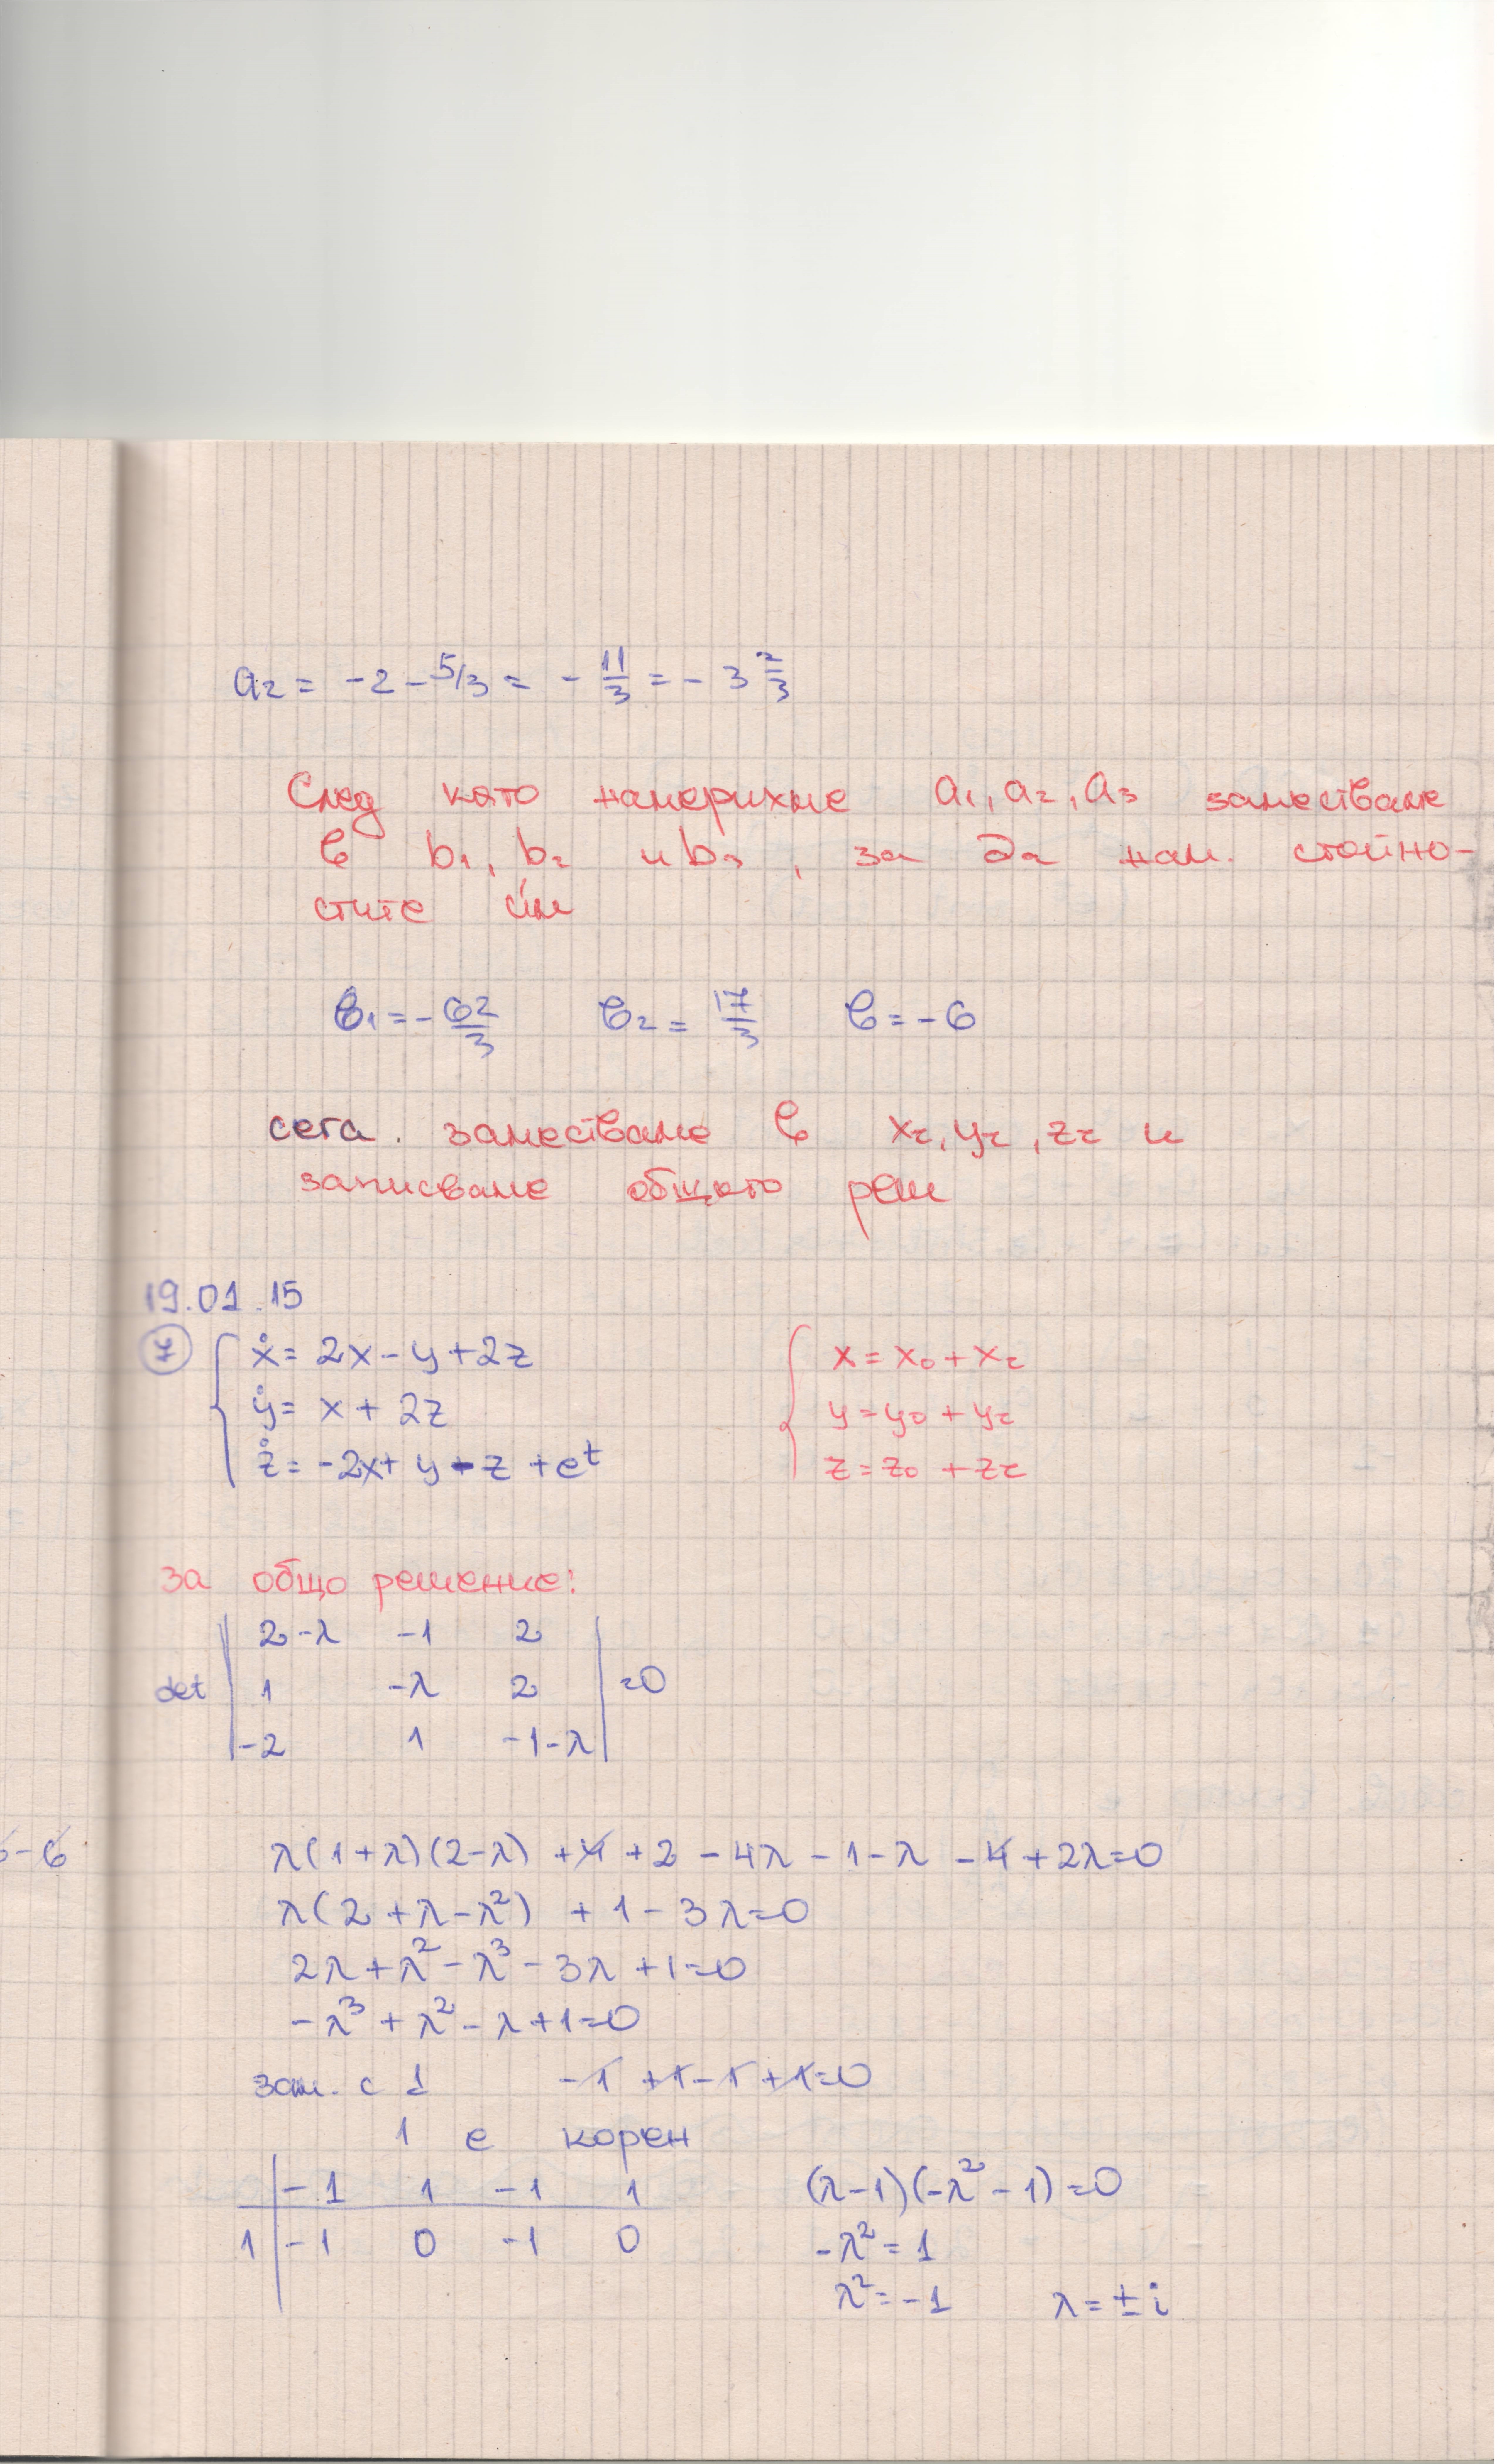 a₂ = -2 - 5/3 = - 11/3 = - 3 2/3
След като намерихме a₁, a₂, a₃ заместваме
в b₁, b₂ и b₃, за да нам. стойно-
стите им
в₁ = - 62/3 в₂ = 17/3 в = -6
сега. заместваме в xг, yг, zг и
записваме общото реш
19.01.15
7 ẋ = 2x - y + 2z x = x₀ + xг
ẏ = x + 2z y = y₀ + yг
ż = -2x + y - z + eᵗ z = z₀ + zг
за общо решение:
2-λ -1 2
det 1 -λ 2 =0
-2 1 -1-λ
-6 λ(1+λ)(2-λ) + 4 + 2 - 4λ - 1 - λ - 4 + 2λ = 0
λ(2 + λ - λ²) + 1 - 3λ = 0
2λ + λ² - λ³ - 3λ + 1 = 0
-λ³ + λ² - λ + 1 = 0
зам. с 1 -1 + 1 - 1 + 1 = 0
1 е корен
-1 1 -1 1 (λ-1)(-λ²-1) = 0
1 -1 0 -1 0 -λ² = 1
λ² = -1 λ = ± i